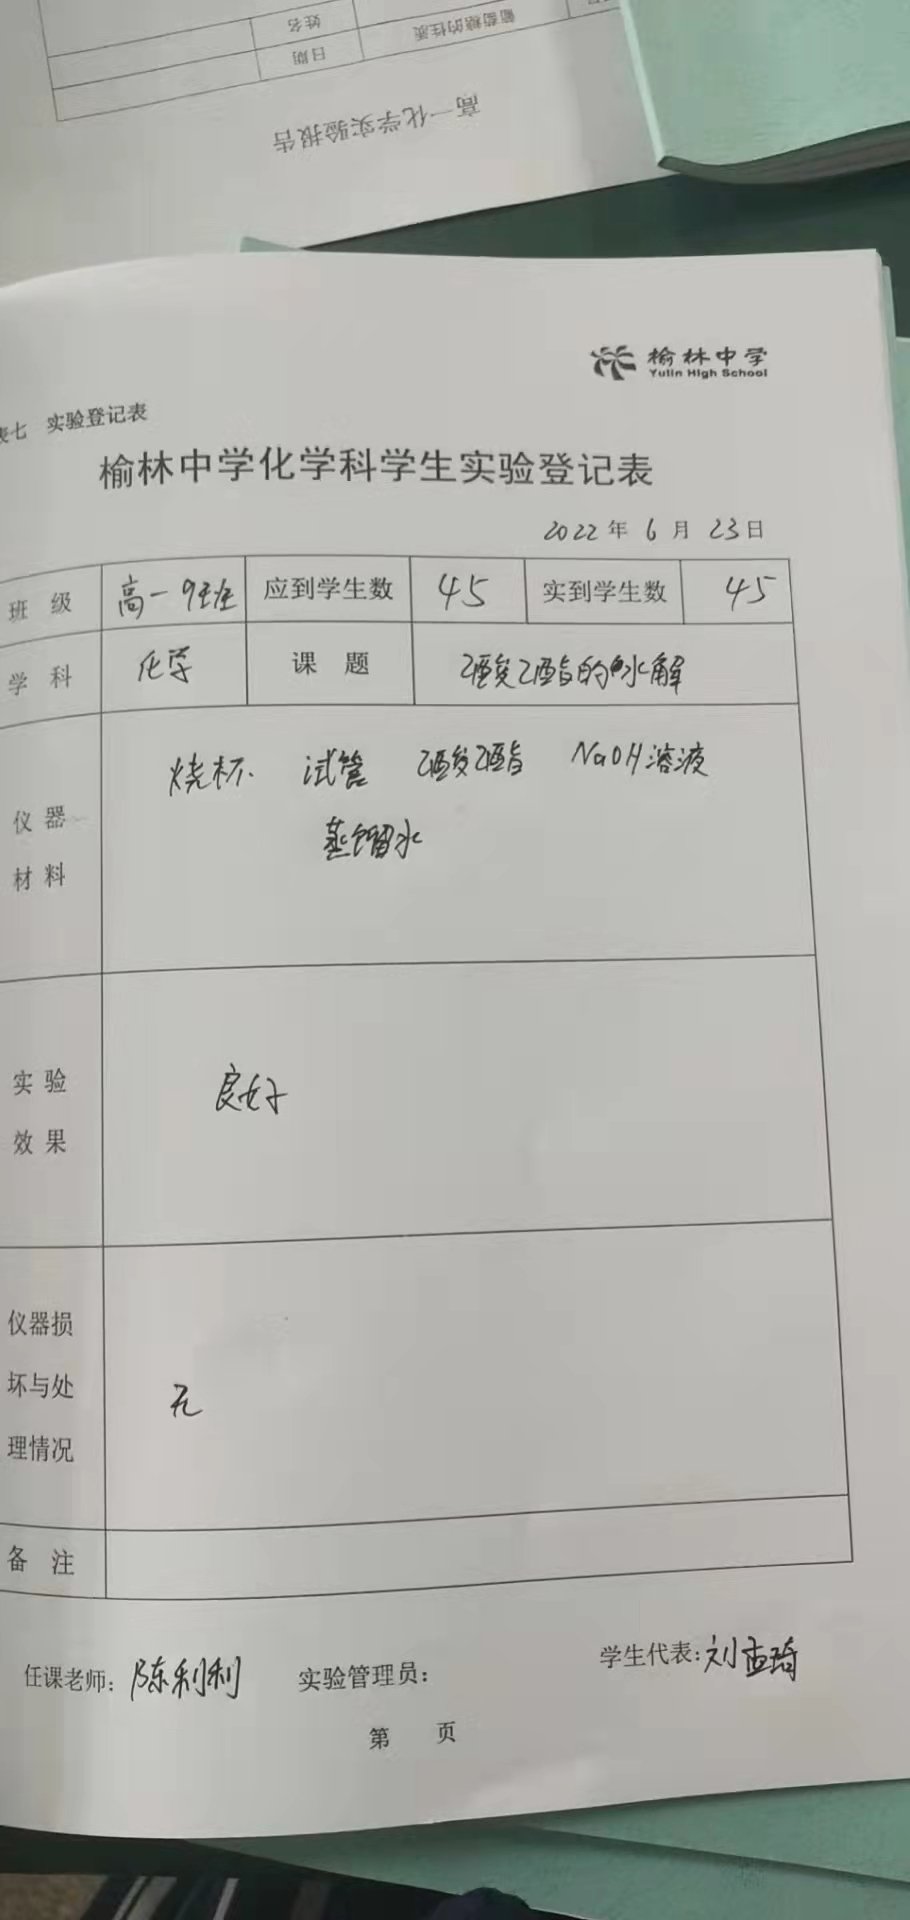 高一化学实验报告
日期
葡萄糖的性质
姓名
榆林中学
Yulin High School
表七 实验登记表
榆林中学化学科学生实验登记表
2022年 6月 23日
班 级 高一9班 应到学生数 45 实到学生数 45
学 科 化学 课 题 乙酸乙酯的水解
仪 器 材 料
烧杯 试管 乙酸乙酯 NaOH溶液
蒸馏水
实 验 效 果
良好
仪器损坏与处理情况
无
备 注
任课老师：陈利利 实验管理员： 学生代表：刘孟琦
第 页